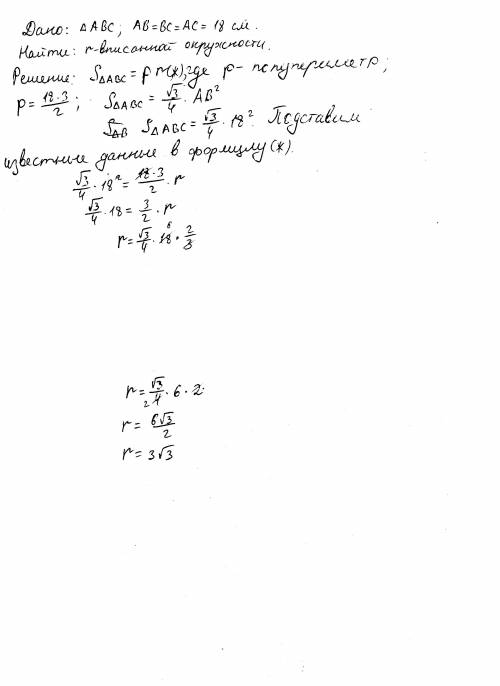 Дано: △ABC; AB=BC=AC=18 см.
Найти: r-вписанной окружности.
Решение: S△ABC = p r(*), где p- полупериметр;
p = 18·3/2; S△ABC = √3/4 · AB²
S△ABC = √3/4 · 18². Подставим
известные данные в формулу (*).
√3/4 · 18² = 18·3/2 · r
√3/4 · 18 = 3/2 · r
r = √3/4 · 18 · 2/3
r = √3/4 · 6 · 2
r = 6√3/2
r = 3√3